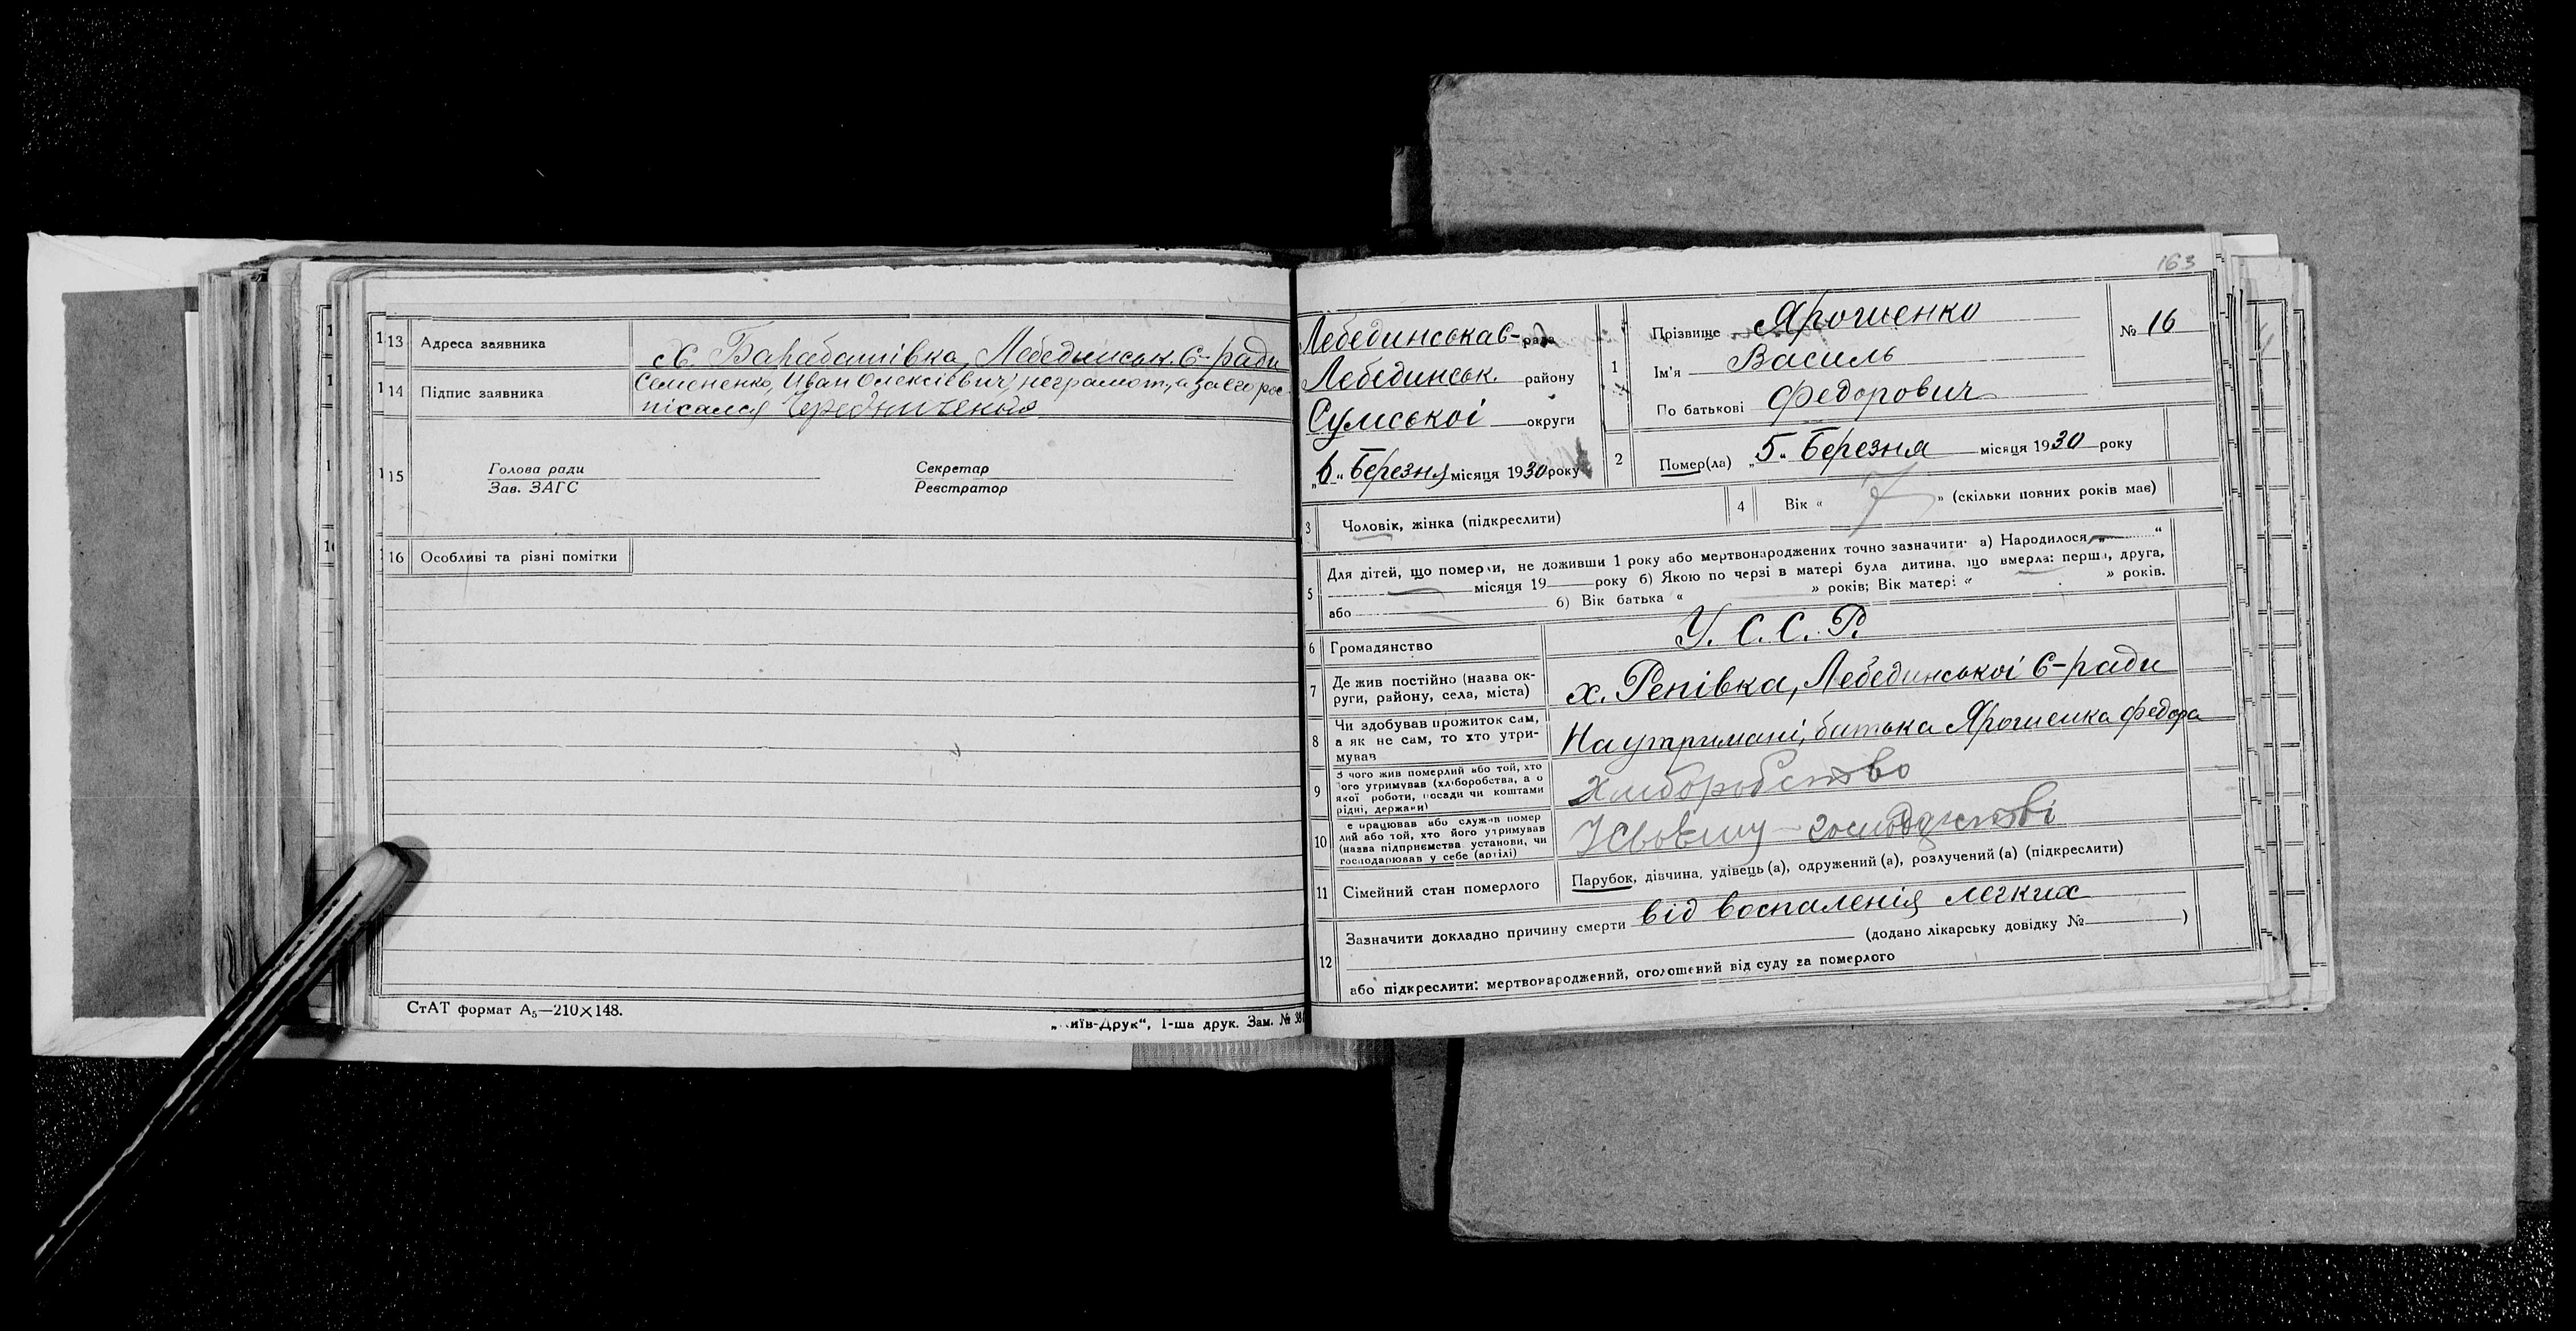 13 Адреса заявника х. Барабашівка, Лебединськ. С-ради
14 Підпис заявника Семененко, Иван Олексіевич, неграмотн, а за его рос-
пісался Чередниченко
15 Голова ради Секретар
Зав. ЗАГС Реєстратор
16 Особливі та різні помітки
СтАТ формат А5—210×148.
иїв-Друк“, 1-ша друк. Зам. № 38
163
Лебединська С- рада
Лебединськ. району
Сумської округи
„6“ Березня місяця 1930 року
1 Прізвище Ярошенко
Ім'я Василь
По батькові Федорович
№ 16
2 Помер(ла) „5“ Березня місяця 1930 року
3 Чоловік, жінка (підкреслити)
4 Вік « 7 » (скільки повних років має)
5 Для дітей, що померли, не доживши 1 року або мертвонароджених точно зазначити: а) Народилося „ “
місяця 19 року б) Якою по черзі в матері була дитина, що вмерла: перша, друга,
або в) Вік батька « » років; Вік матері « » років.
6 Громадянство У. С. С. Р.
7 Де жив постійно (назва ок-
руги, району, села, міста) х. Репівка, Лебединської С-ради
8 Чи здобував прожиток сам,
а як не сам, то хто утри-
мував На утримані, батька Ярошенка Федора
9 З чого жив померлий або той, хто
його утримував (хліборобства, а о
якої роботи, посади чи коштами
рідні, держави) Хліборобство
10 е працював або служив помер
лий або той, хто його утримував
(назва підприємства установи, чи
господарював у себе (артілі) У своєму господарстві
11 Сімейний стан померлого Парубок, дівчина, удівець (а), одружений (а), розлучений (а) (підкреслити)
12 Зазначити докладно причину смерти від воспаленія легких
(додано лікарську довідку № )
або підкреслити: мертвонароджений, оголошений від суду за померлого